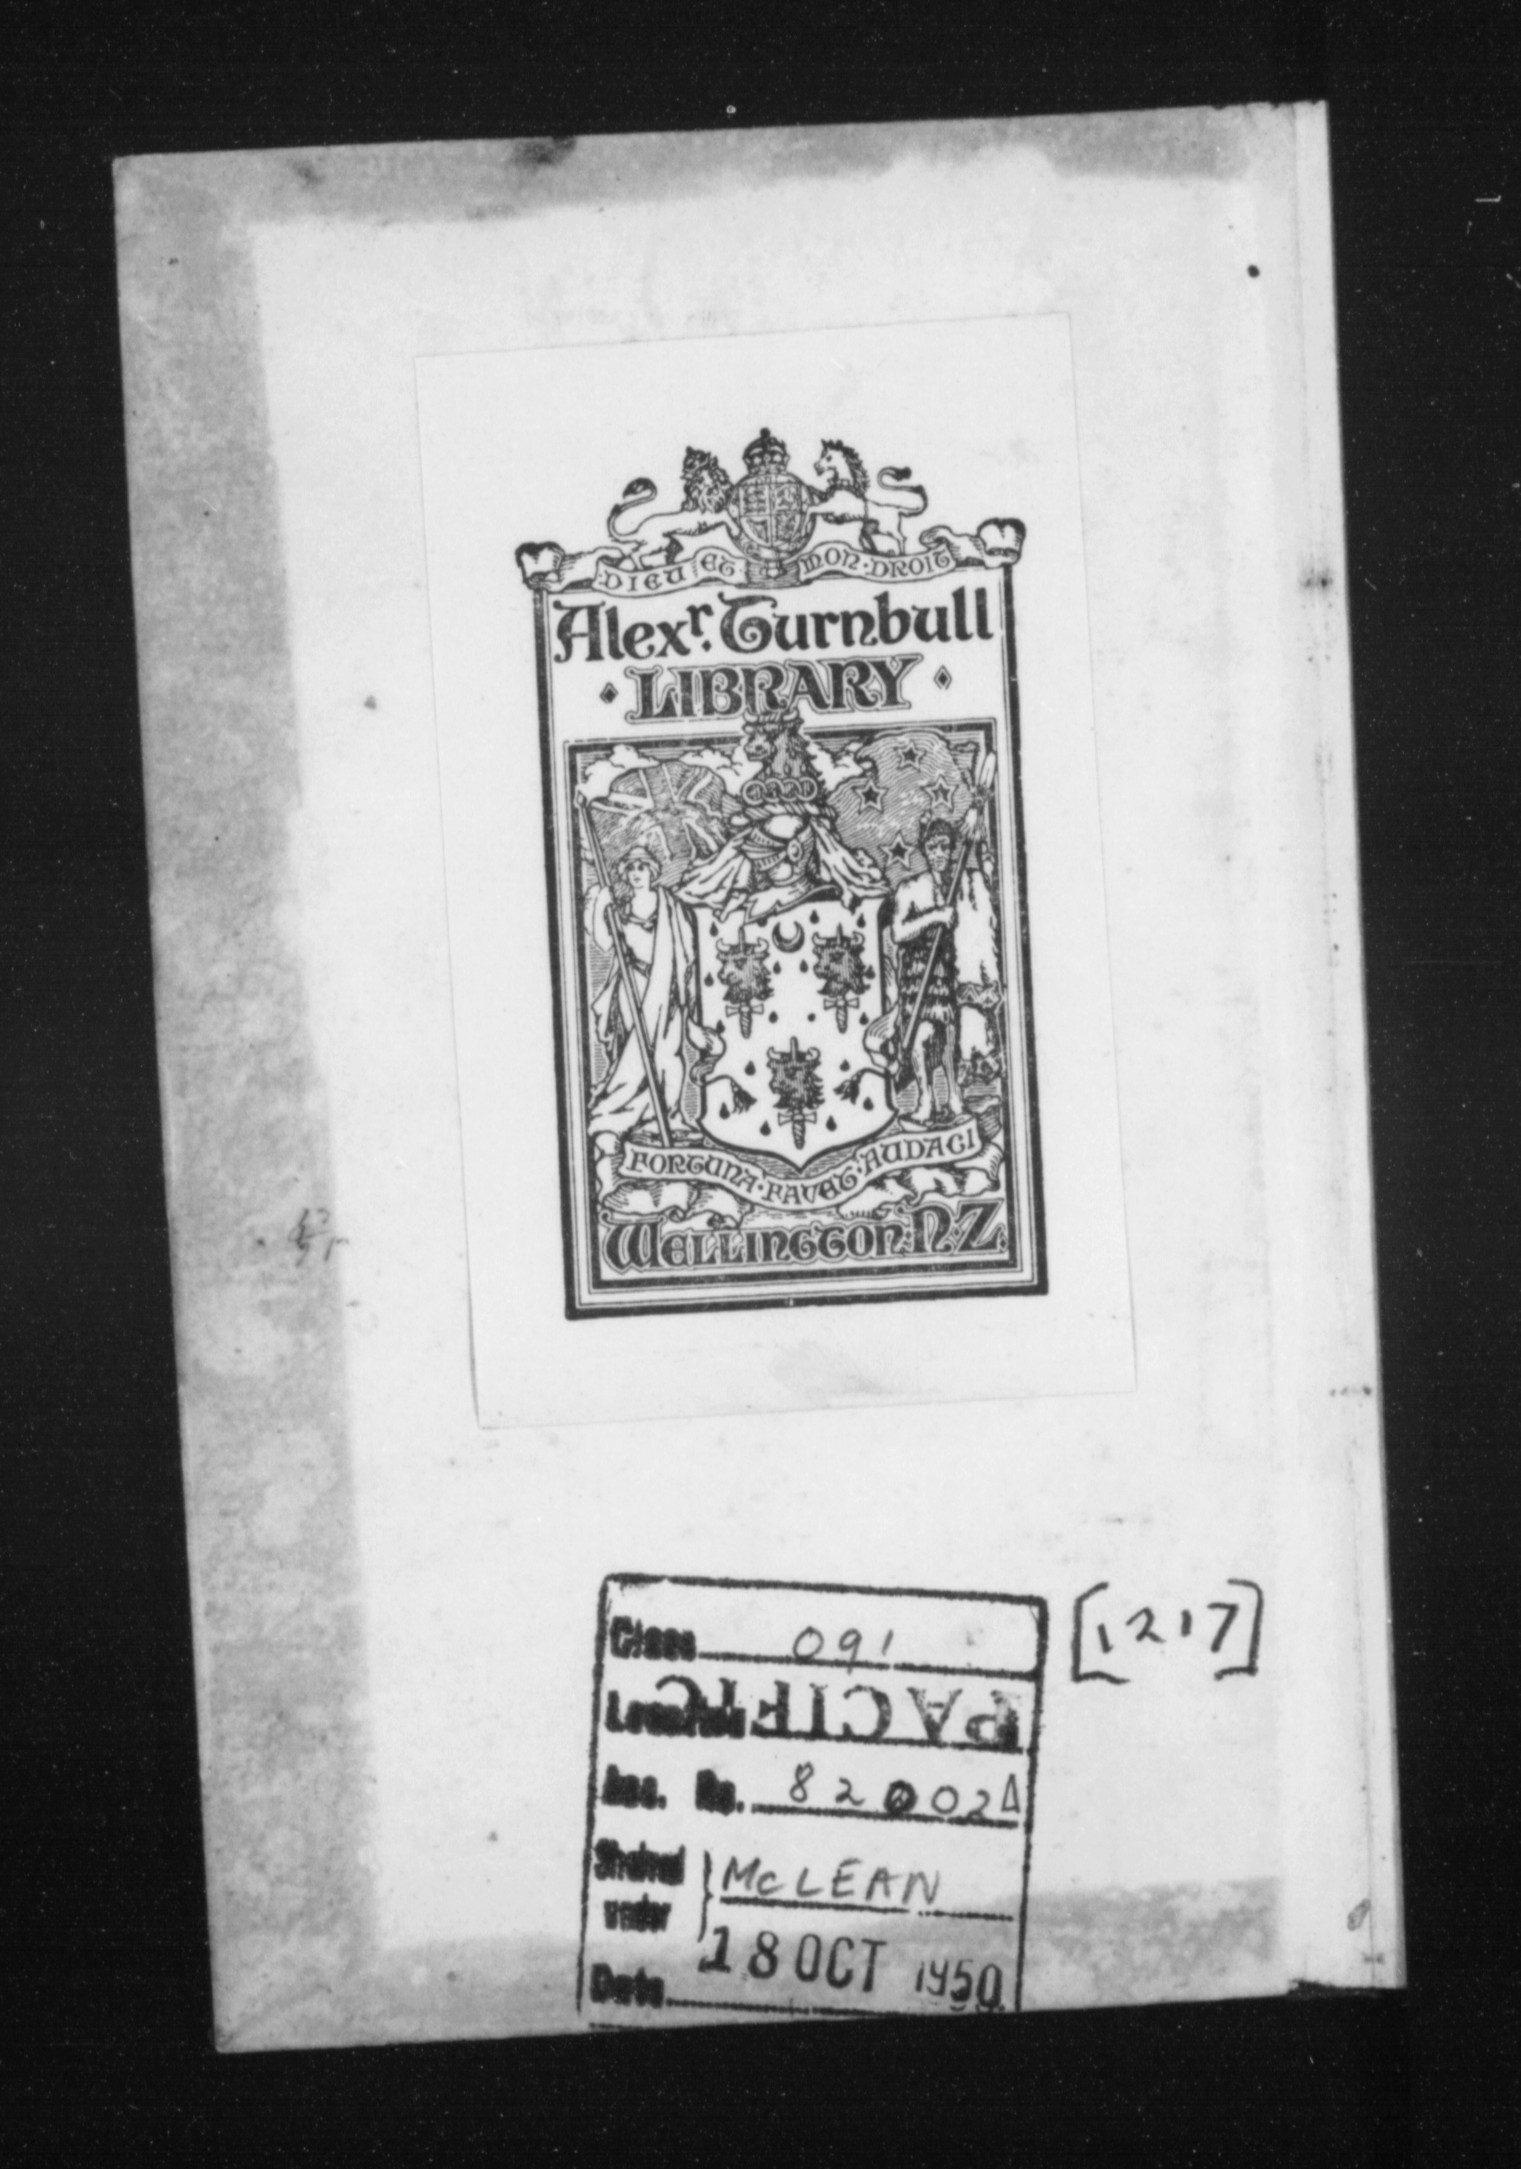 DIEU ET MON DROIT
Alexr. Turnbull
LIBRARY
FORTUNA · FAVET · AUDACI
WELLINGTON. N.Z.
[1217]
Class 091
Location PACIFIC
Acc. No. 82002A
Shelved
under } McLEAN
Date 18 OCT 1950